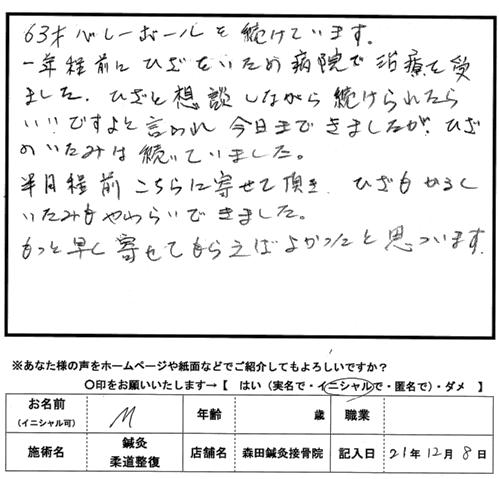 63才バレーボールを続けています。
一年程前にひざをいため病院で治療を受
ました。ひざと想談しながら続けられたら
いいですよと言われ今日まできましたが、ひざ
のいたみは続いていました。
半月程前こちらに寄せて頂き、ひざもかるく
いたみもやわらいできました。
もっと早く寄せてもらえばよかったと思っています。
※あなた様の声をホームページや紙面などでご紹介してもよろしいですか?
〇印をお願いいたします→【 はい(実名で・イニシャルで・匿名で)・ダメ 】
お名前 M 年齢 歳 職業
(イニシャル可)
施術名 鍼灸 柔道整復 店舗名 森田鍼灸接骨院 記入日 21年12月8日